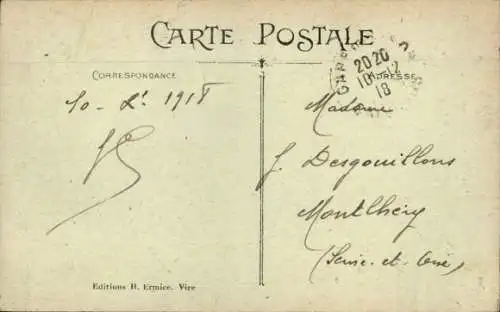 CARTE POSTALE
CORRESPONDANCE
ADRESSE
2020
10-12
18
10 - Xr 1918
Madame
J. Desgouillons
Montlhéry
(Seine-et-Oise)
Editions H. Ermice. Vire